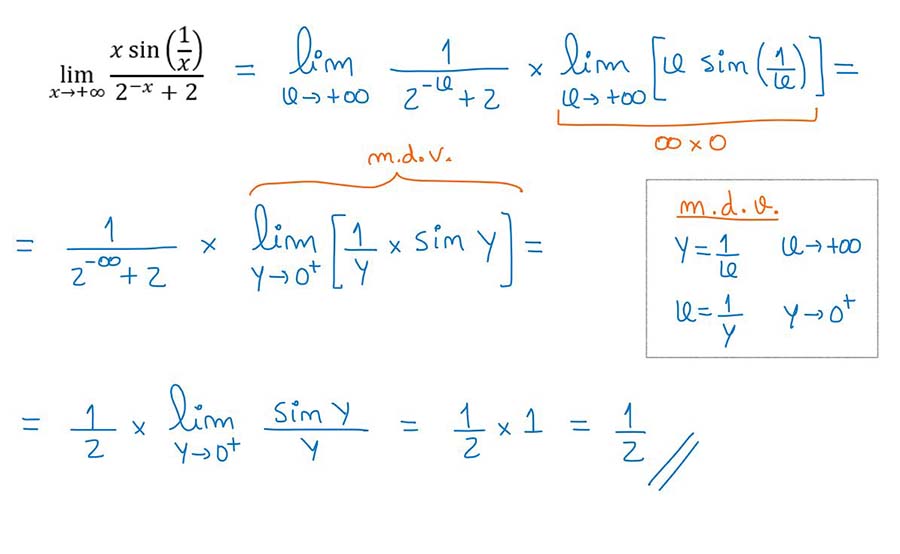 lim x→+∞ x sin (1/x) / 2^(-x) + 2 = lim x→+∞ 1 / 2^(-x) + 2 × lim x→+∞ [x sin(1/x)] =
∞ × 0
m.d.v.
= 1 / 2^(-∞) + 2 × lim y→0⁺ [1/y × sin y] =
m.d.v.
y = 1/x x→+∞
x = 1/y y→0⁺
= 1/2 × lim y→0⁺ sin y / y = 1/2 × 1 = 1/2 //